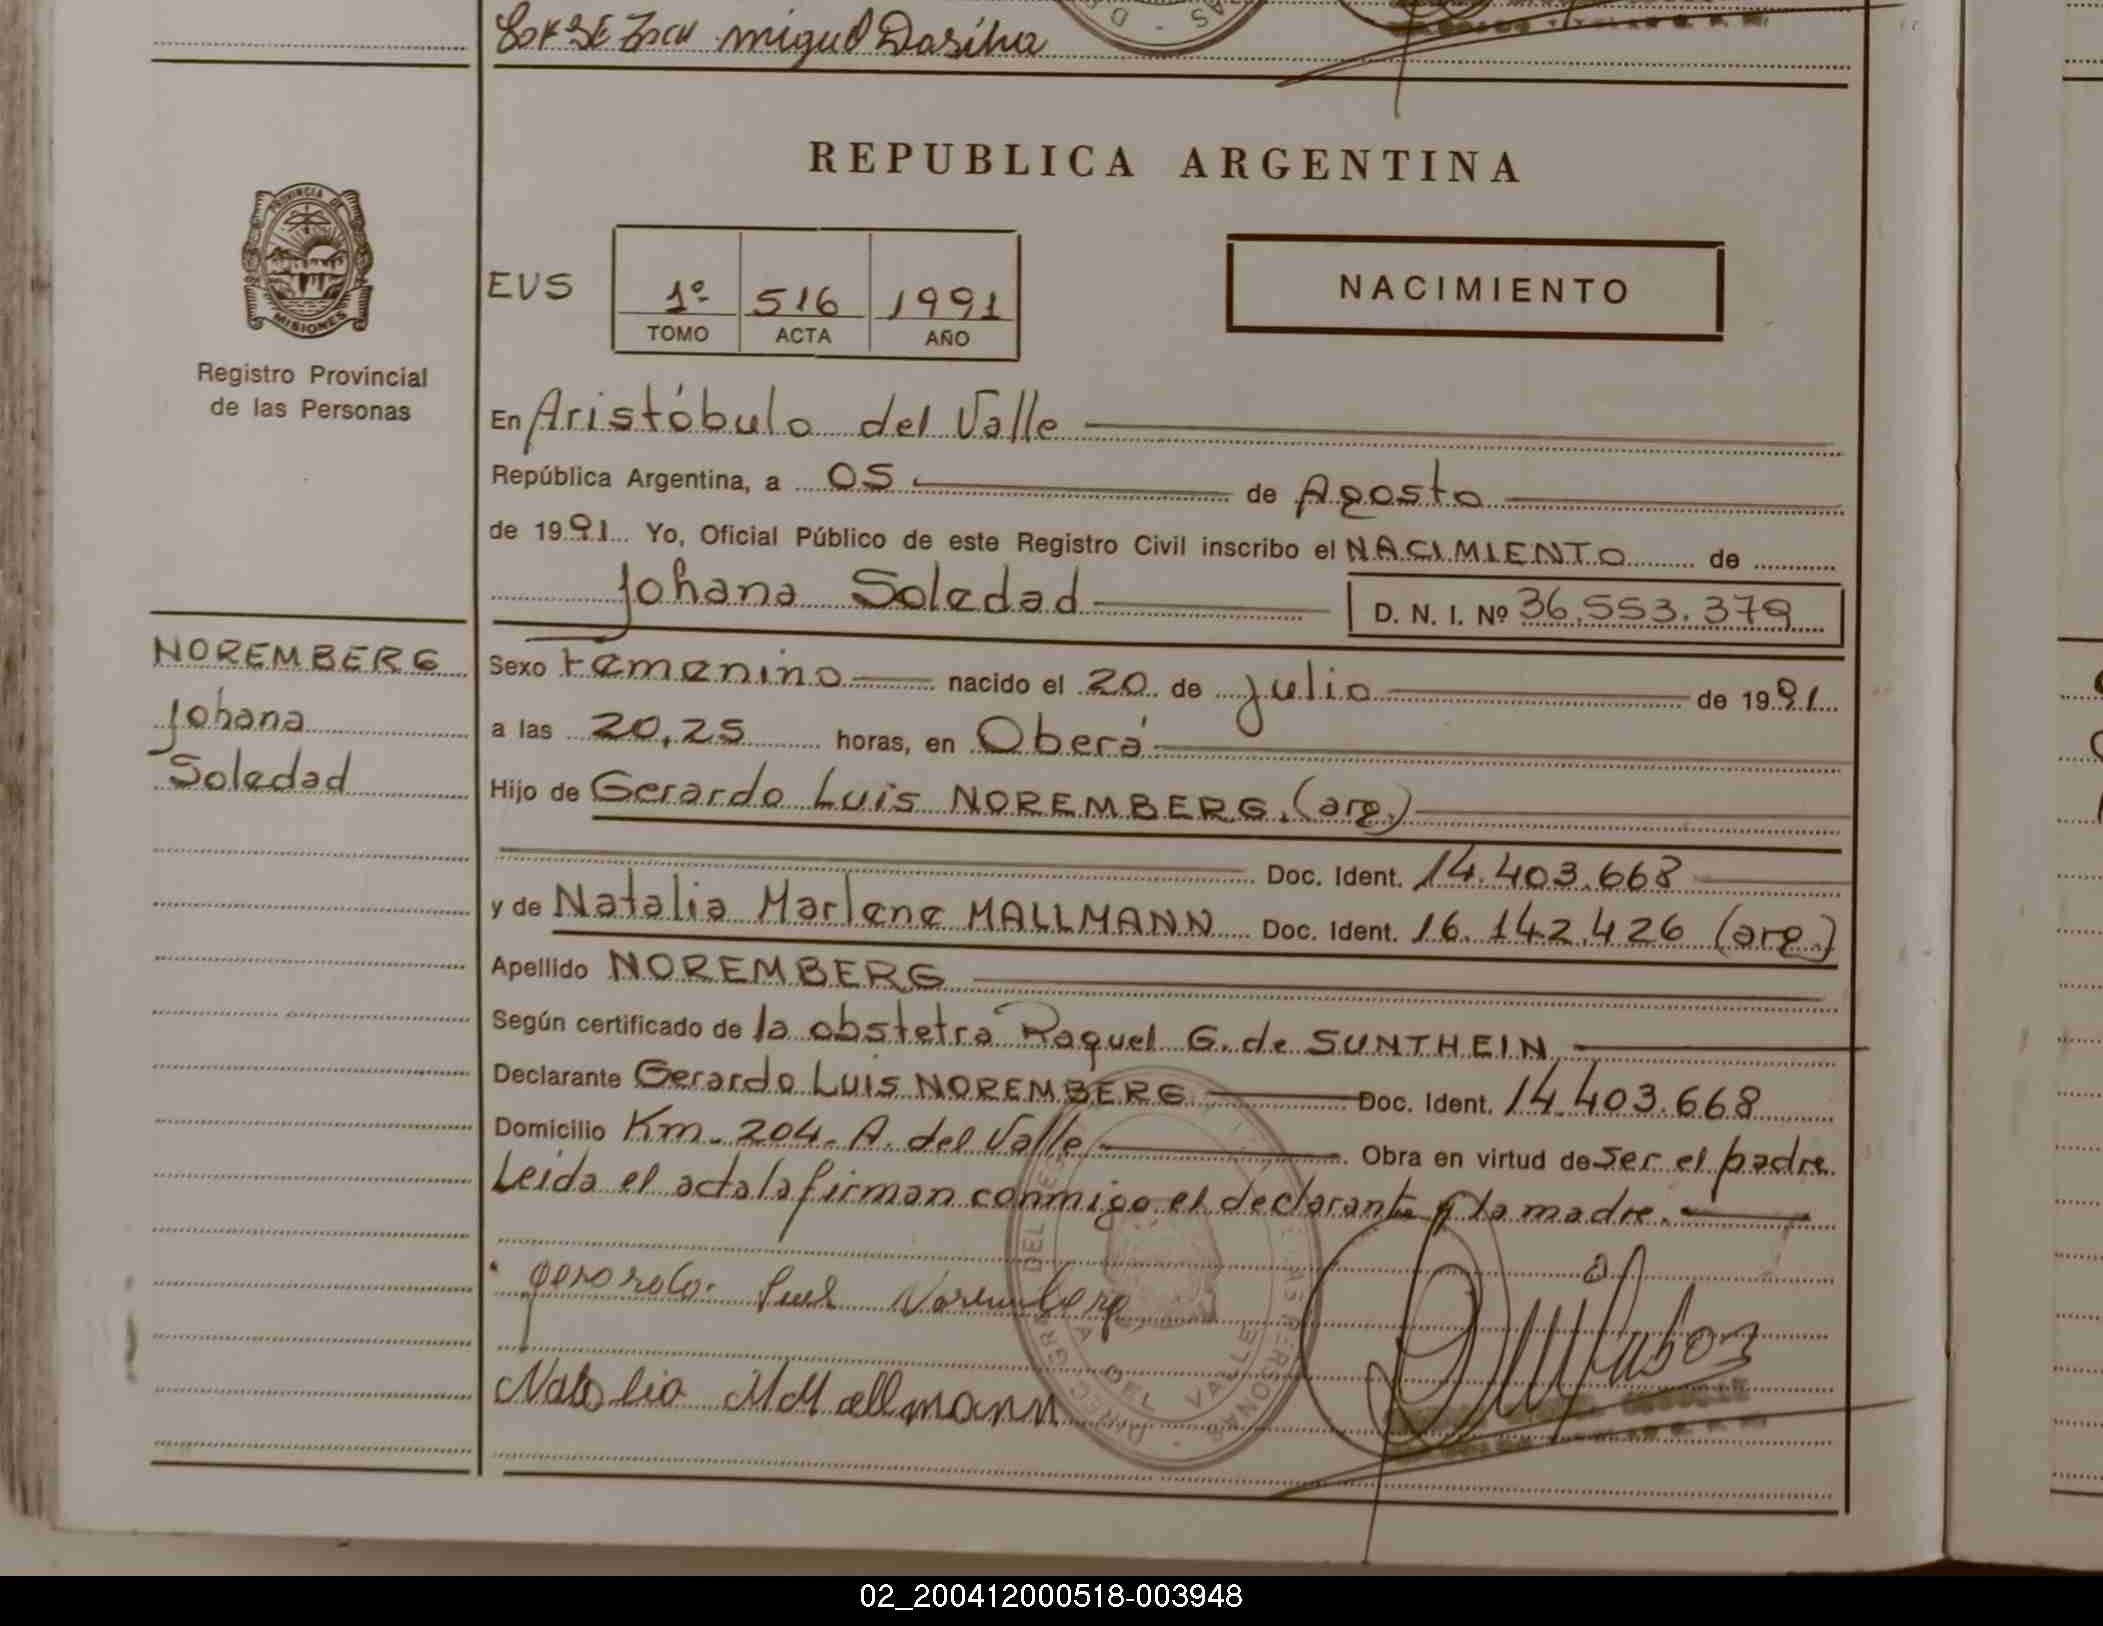 Miguel Dasilva
REPUBLICA ARGENTINA
PROVINCIA DE
MISIONES
Registro Provincial
de las Personas
EVS
1º 516 1991
TOMO ACTA AÑO
NACIMIENTO
En Aristóbulo del Valle
República Argentina, a 05 de Agosto
de 1991 Yo, Oficial Público de este Registro Civil inscribo el NACIMIENTO de
Johana Soledad D. N. I. Nº 36.553.379
NOREMBERG
Johana
Soledad
Sexo Femenino nacido el 20 de julio de 1991
a las 20,25 horas, en Oberá
Hijo de Gerardo Luis NOREMBERG, (arg.)
Doc. Ident. 14.403.668
y de Natalia Marlene MALLMANN Doc. Ident. 16.142.426 (arg.)
Apellido NOREMBERG
Según certificado de la obstetra Raquel G. de SUNTHEIN
Declarante Gerardo Luis NOREMBERG Doc. Ident. 14.403.668
Domicilio Km. 204- A. del Valle Obra en virtud de ser el padre
Leida el acta la firman conmigo el declarante y la madre.
Gerardo Luis Noremberg
Natalia M Mallmann
DEL VALLE
02_200412000518-003948